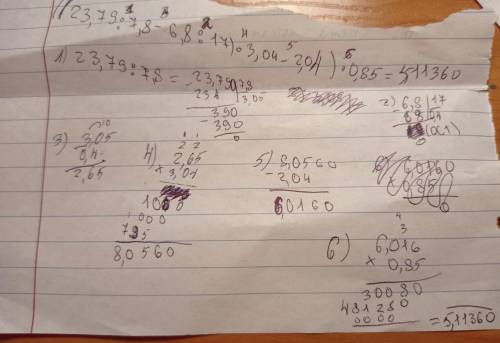 23,79 : 7,8 - 6,8 : 17) · 3,04 - 2,04) · 0,85 = 5,11360
1 3 2 4 5 6
1) 23,79 : 7,8 =
- 23,79 | 7,8
234 | 3,05
390
- 390
0
2) 6,8 | 17
0
3) 3,05
0,4
2,65
4) 2,65
× 3,04
1060
000
795
8,0560
5) 8,0560
- 2,04
6,0160
6) 6,016
× 0,85
30080
48128
0000
= 5,11360